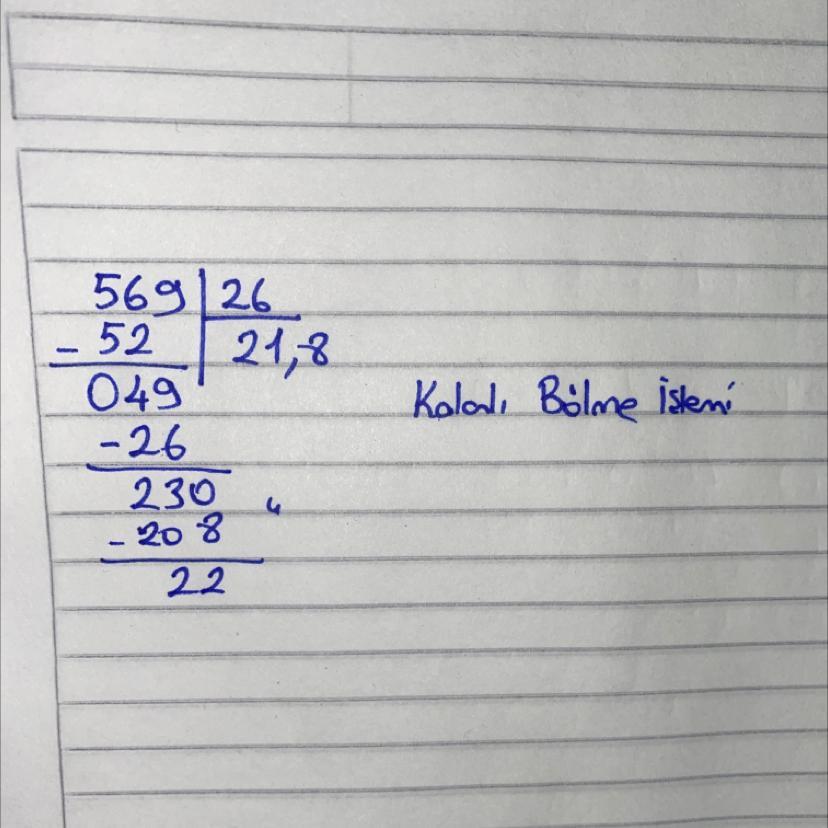 569 | 26
- 52 | 21,8
049
Kalalı Bölme İşlemi
-26
230 ,
-208
22